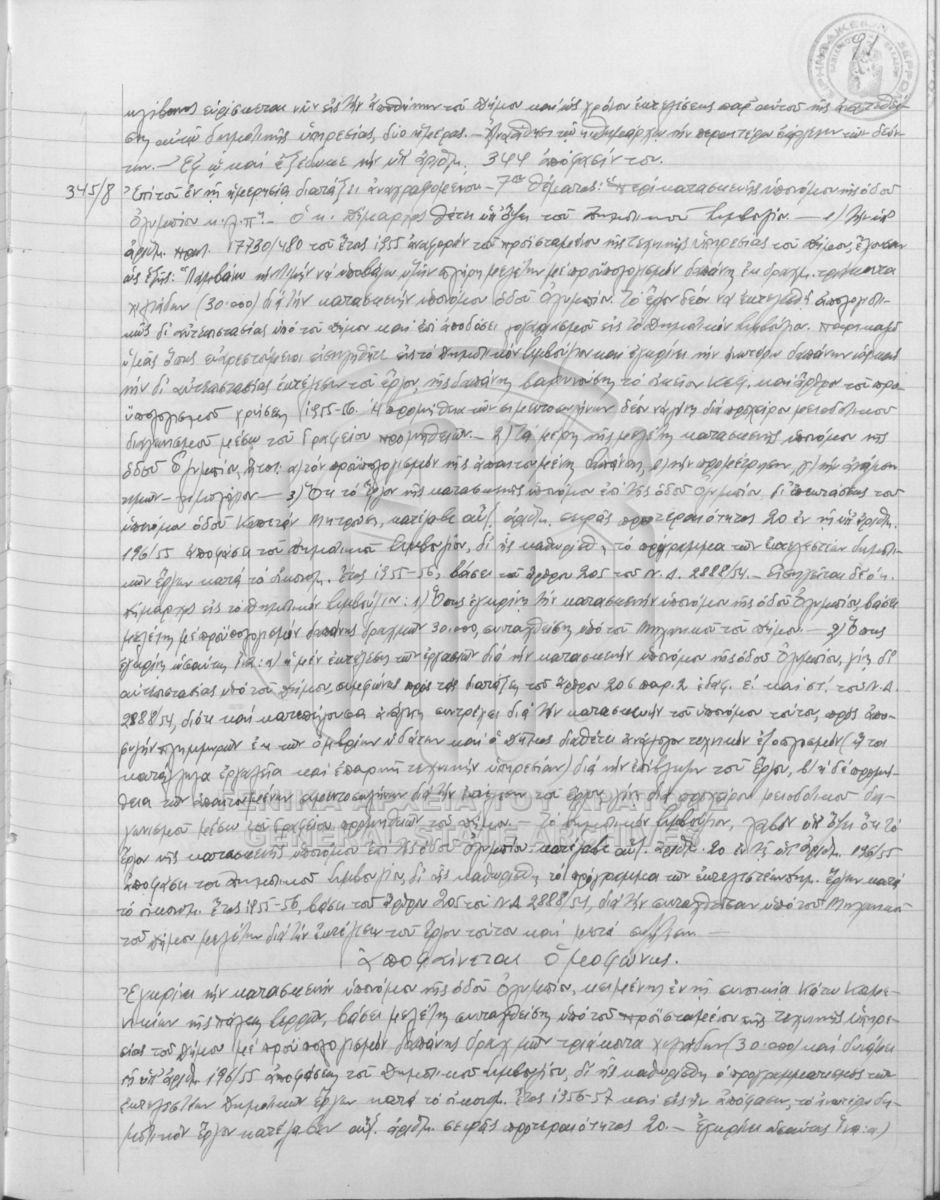 91
κλίβανος εὑρίσκεται νῦν εἰς τὴν ἀποθήκην τοῦ Δήμου καὶ ὡς χρόνον ἐκτελέσεως παρ' αὐτοῦ τῆς
αὐτῷ δημοτικῆς ὑπηρεσίας, δύο ἡμέρας. — τῷ κ. Δημάρχῳ τὴν περαιτέρω ἐνέργειαν τῶν δεόν-
των. — Ἐφ' ᾧ καὶ ἐξέδωκε τὴν ὑπ' ἀριθμ. 344 ἀπόφασίν του.
345/8 Ἐπὶ τοῦ ἐν τῇ ἡμερησίᾳ διατάξει ἀναγραφομένου 7ου θέματος: "Περὶ κατασκευῆς ὑπονόμου τῆς ὁδοῦ
Ὀλυμπίου κ.λ.π." — Ὁ κ. Δήμαρχος θέτει ὑπ' ὄψει τοῦ Δημοτικοῦ Συμβουλίου. — 1) Τὴν ὑπ'
ἀριθμ. πρωτ. 17730/480 τοῦ ἔτους 1955 ἀναφορὰν τοῦ προϊσταμένου τῆς τεχνικῆς ὑπηρεσίας τοῦ Δήμου, ἔχουσαν
ὡς ἑξῆς: Λαμβάνω τὴν τιμὴν νὰ ὑποβάλω ὑμῖν πλήρη μελέτην μὲ προϋπολογισμὸν δαπάνης ἐκ δραχμ. τριάκοντα
χιλιάδων (30.000) διὰ τὴν κατασκευὴν ὑπονόμου ὁδοῦ Ὀλυμπίου. Τὸ ἔργον δέον νὰ ἐκτελεσθῇ ἀπολογιστι-
κῶς δι' αὐτεπιστασίας ὑπὸ τοῦ Δήμου καὶ ἐπὶ ἀποδόσει λογαριασμοῦ εἰς τὸ Δημοτικὸν Συμβούλιον. Παρακαλῶ
ὑμᾶς ὅπως εὐαρεστούμενοι εἰσηγηθῆτε εἰς τὸ Δημοτικὸν Συμβούλιον καὶ ἐγκρίνει τὴν ἀνωτέρω δαπάνην
τὴν δι' αὐτεπιστασίας ἐκτέλεσιν τοῦ ἔργου, τῆς δαπάνης βαρυνούσης τὸ οἰκεῖον κεφ. καὶ ἄρθρον τοῦ προ-
ϋπολογισμοῦ χρήσεως 1955-56. Ἡ προμήθεια τῶν σιμεντοσωλήνων δέον νὰ γίνῃ διὰ προχείρου μειοδοτικοῦ
διαγωνισμοῦ μέσω τοῦ Γραφείου προμηθειῶν. — 2) Τὰ μέρη τῆς μελέτης κατασκευῆς ὑπονόμου τῆς
ὁδοῦ Ὀλυμπίου, ἤτοι: α) τὸν προϋπολογισμὸν τῆς ἀπαιτουμένης δαπάνης, β) τὴν προμέτρησιν, γ) τὴν ἀνάλυσιν
τιμῶν — τιμολόγιον. — 3) Ὅτι τὸ ἔργον τῆς κατασκευῆς ὑπονόμου ἐπὶ τῆς ὁδοῦ Ὀλυμπίου, δι' ἐπεκτάσεως τοῦ
ὑπονόμου ὁδοῦ Καπετὰν Μητρούση, κατέλαβε αὔξ. ἀριθμ. σειρᾶς προτεραιότητος 20 ἐν τῇ ὑπ' ἀριθμ.
196/55 ἀποφάσει τοῦ Δημοτικοῦ Συμβουλίου, δι' ἧς καθωρίσθη τὸ πρόγραμμα τῶν ἐκτελεστέων δημοτι-
κῶν ἔργων κατὰ τὸ οἰκονομ. ἔτος 1955-56, βάσει τοῦ ἄρθρου 205 τοῦ Ν.Δ. 2888/54. — Εἰσηγεῖται δὲ ὁ κ.
Δήμαρχος εἰς τὸ Δημοτικὸν Συμβούλιον: 1) Ὅπως ἐγκρίνῃ τὴν κατασκευὴν ὑπονόμου τῆς ὁδοῦ Ὀλυμπίου, βάσει
μελέτης μὲ προϋπολογισμὸν δαπάνης δραχμῶν 30.000, συνταχθείσης ὑπὸ τοῦ Μηχανικοῦ τοῦ Δήμου. — 2) Ὅπως
ἐγκρίνῃ ὡσαύτως ἵνα: α) ἡ μὲν ἐκτέλεσις τῶν ἐργασιῶν διὰ τὴν κατασκευὴν ὑπονόμου τῆς ὁδοῦ Ὀλυμπίου, γίνῃ δι'
αὐτεπιστασίας ὑπὸ τοῦ Δήμου, συμφώνως πρὸς τὰς διατάξεις τοῦ ἄρθρου 206 παρ. 2 ἐδαφ. ε'. καὶ στ'. τοῦ Ν.Δ.
2888/54, διότι καὶ κατεπείγουσα ἀνάγκη συντρέχει διὰ τὴν κατασκευὴν τοῦ ὑπονόμου τούτου, πρὸς ἀπο-
φυγὴν πλημμυρῶν ἐκ τῶν ὀμβρίων ὑδάτων καὶ ὁ Δῆμος διαθέτει ἀνάλογον τεχνικὸν ἐξοπλισμὸν (ἤτοι
κατάλληλα ἐργαλεῖα καὶ ἐπαρκῆ τεχνικὴν ὑπηρεσίαν) διὰ τὴν ἐπίβλεψιν τοῦ ἔργου, β) ἡ δὲ προμή-
θεια τῶν ἀπαιτουμένων σιμεντοσωλήνων διὰ τὴν ἐκτέλεσιν τοῦ ἔργου γίνῃ διὰ προχείρου μειοδοτικοῦ δια-
γωνισμοῦ μέσω τοῦ Γραφείου προμηθειῶν τοῦ Δήμου. — Τὸ Δημοτικὸν Συμβούλιον, λαβὸν ὑπ' ὄψει ὅτι τὸ
ἔργον τῆς κατασκευῆς ὑπονόμου ἐπὶ τῆς ὁδοῦ Ὀλυμπίου κατέλαβε αὔξ. ἀριθμ. 20 ἐν τῇ ὑπ' ἀριθμ. 196/55
ἀποφάσει τοῦ Δημοτικοῦ Συμβουλίου, δι' ἧς καθωρίσθη τὸ πρόγραμμα τῶν ἐκτελεστέων δημ. ἔργων κατὰ
τὸ οἰκονομ. ἔτος 1955-56, βάσει τοῦ ἄρθρου 205 τοῦ Ν.Δ. 2888/54, διὰ τὴν συνταχθεῖσαν ὑπὸ τοῦ Μηχανικοῦ
τοῦ Δήμου μελέτην διὰ τὴν ἐκτέλεσιν τοῦ ἔργου τούτου καὶ μετὰ συζήτησιν —
Ἀποφαίνεται ὁμοφώνως.
Ἐγκρίνει τὴν κατασκευὴν ὑπονόμου τῆς ὁδοῦ Ὀλυμπίου, κειμένης ἐν τῇ συνοικίᾳ Κάτω Καμε-
νικίων τῆς πόλεως Σερρῶν, βάσει μελέτης συνταχθείσης ὑπὸ τοῦ προϊσταμένου τῆς τεχνικῆς ὑπηρε-
σίας τοῦ Δήμου μὲ προϋπολογισμὸν δαπάνης δραχμῶν τριάκοντα χιλιάδων (30.000) καὶ δυνάμει
τῆς ὑπ' ἀριθμ. 196/55 ἀποφάσεως τοῦ Δημοτικοῦ Συμβουλίου, δι' ἧς καθωρίσθη ὁ προγραμματισμὸς τῶν
ἐκτελεστέων Δημοτικῶν ἔργων κατὰ τὸ οἰκονομ. ἔτος 1956-57 καὶ εἰς ἣν ἀπόφασιν, τὸ ἀνωτέρω δη-
μοτικὸν ἔργον κατέλαβεν αὔξ. ἀριθμ. σειρᾶς προτεραιότητος 20. — Ἐγκρίνει ὡσαύτως ἵνα: α)
ΓΕΝΙΚΑ ΑΡΧΕΙΑ ΤΟΥ ΚΡΑΤΟΥΣ
GENERAL STATE ARCHIVES